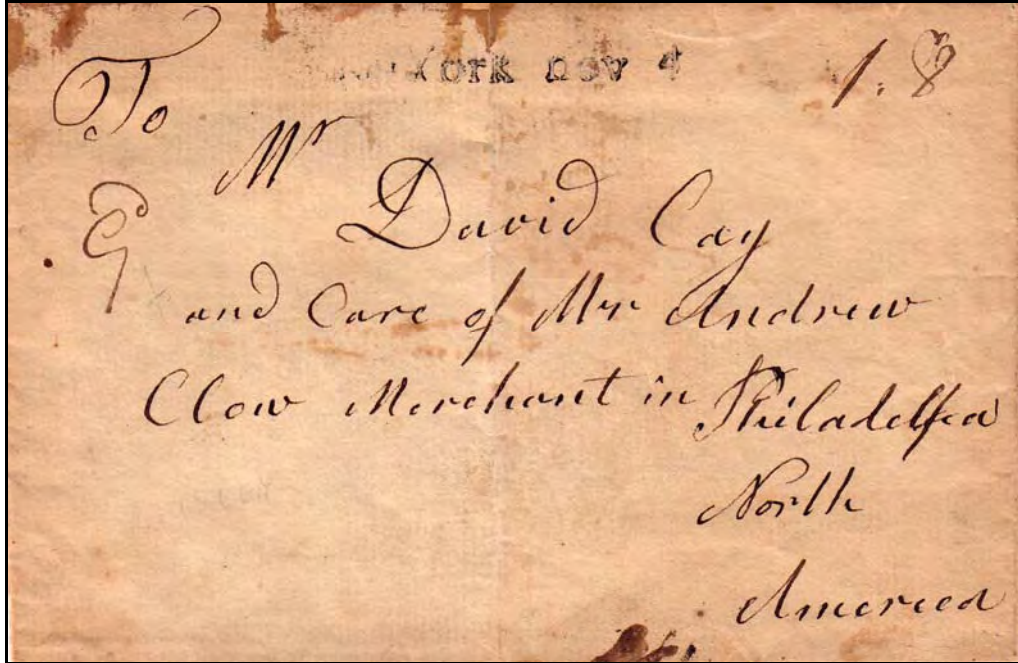 York nov 4
1.8
To
Mr
David Cay
and Care of Mr Andrew
Clow Merchant in Philadelfea
North
America